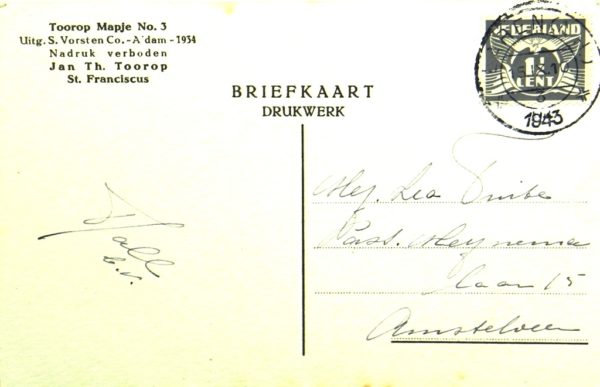 Toorop Mapje No. 3
Uitg. S. Vorsten Co. - A'dam - 1934
Nadruk verboden
Jan Th. Toorop
St. Franciscus
BRIEFKAART
DRUKWERK
NEDERLAND
1½
CENT
1943
Mej. Lea
Past. Meynema
laan 15
Amstelveen